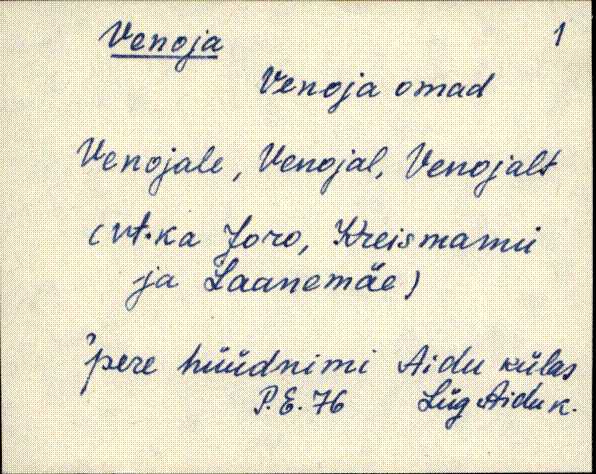 Venoja 1
Venoja omad
Venojale, Venojal, Venojalt
(vt. ka Joro, Kreismanni
ja Laanemäe)
'pere hüüdnimi Aidu külas
P.E. 76 Lüg Aidu k.